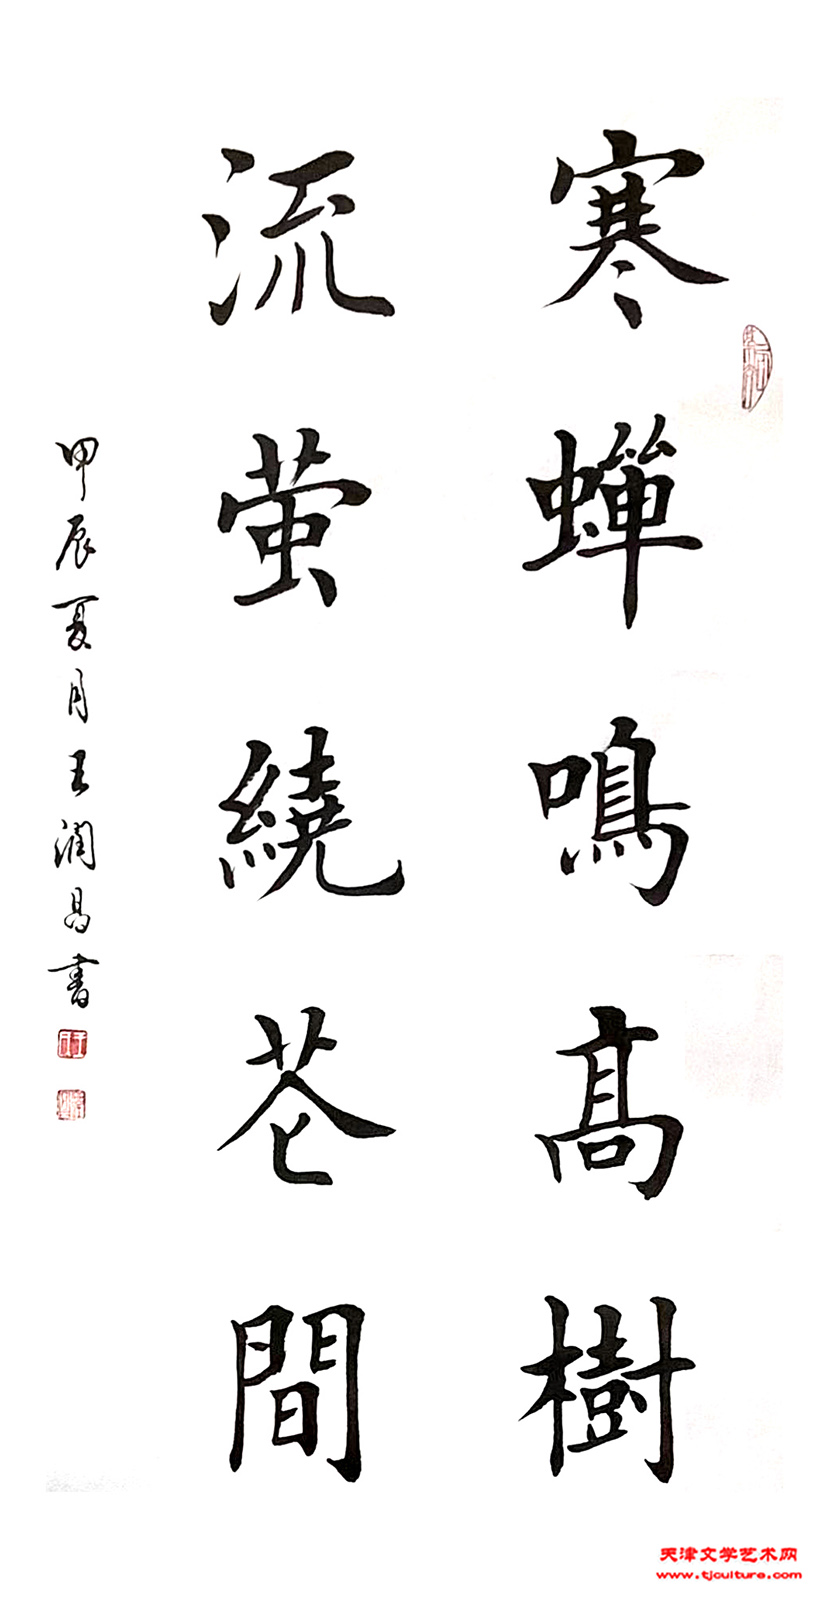 寒蟬鳴高樹
流萤繞苍間
甲辰夏月王潤昌书
天津文学艺术网
www.tjculture.com